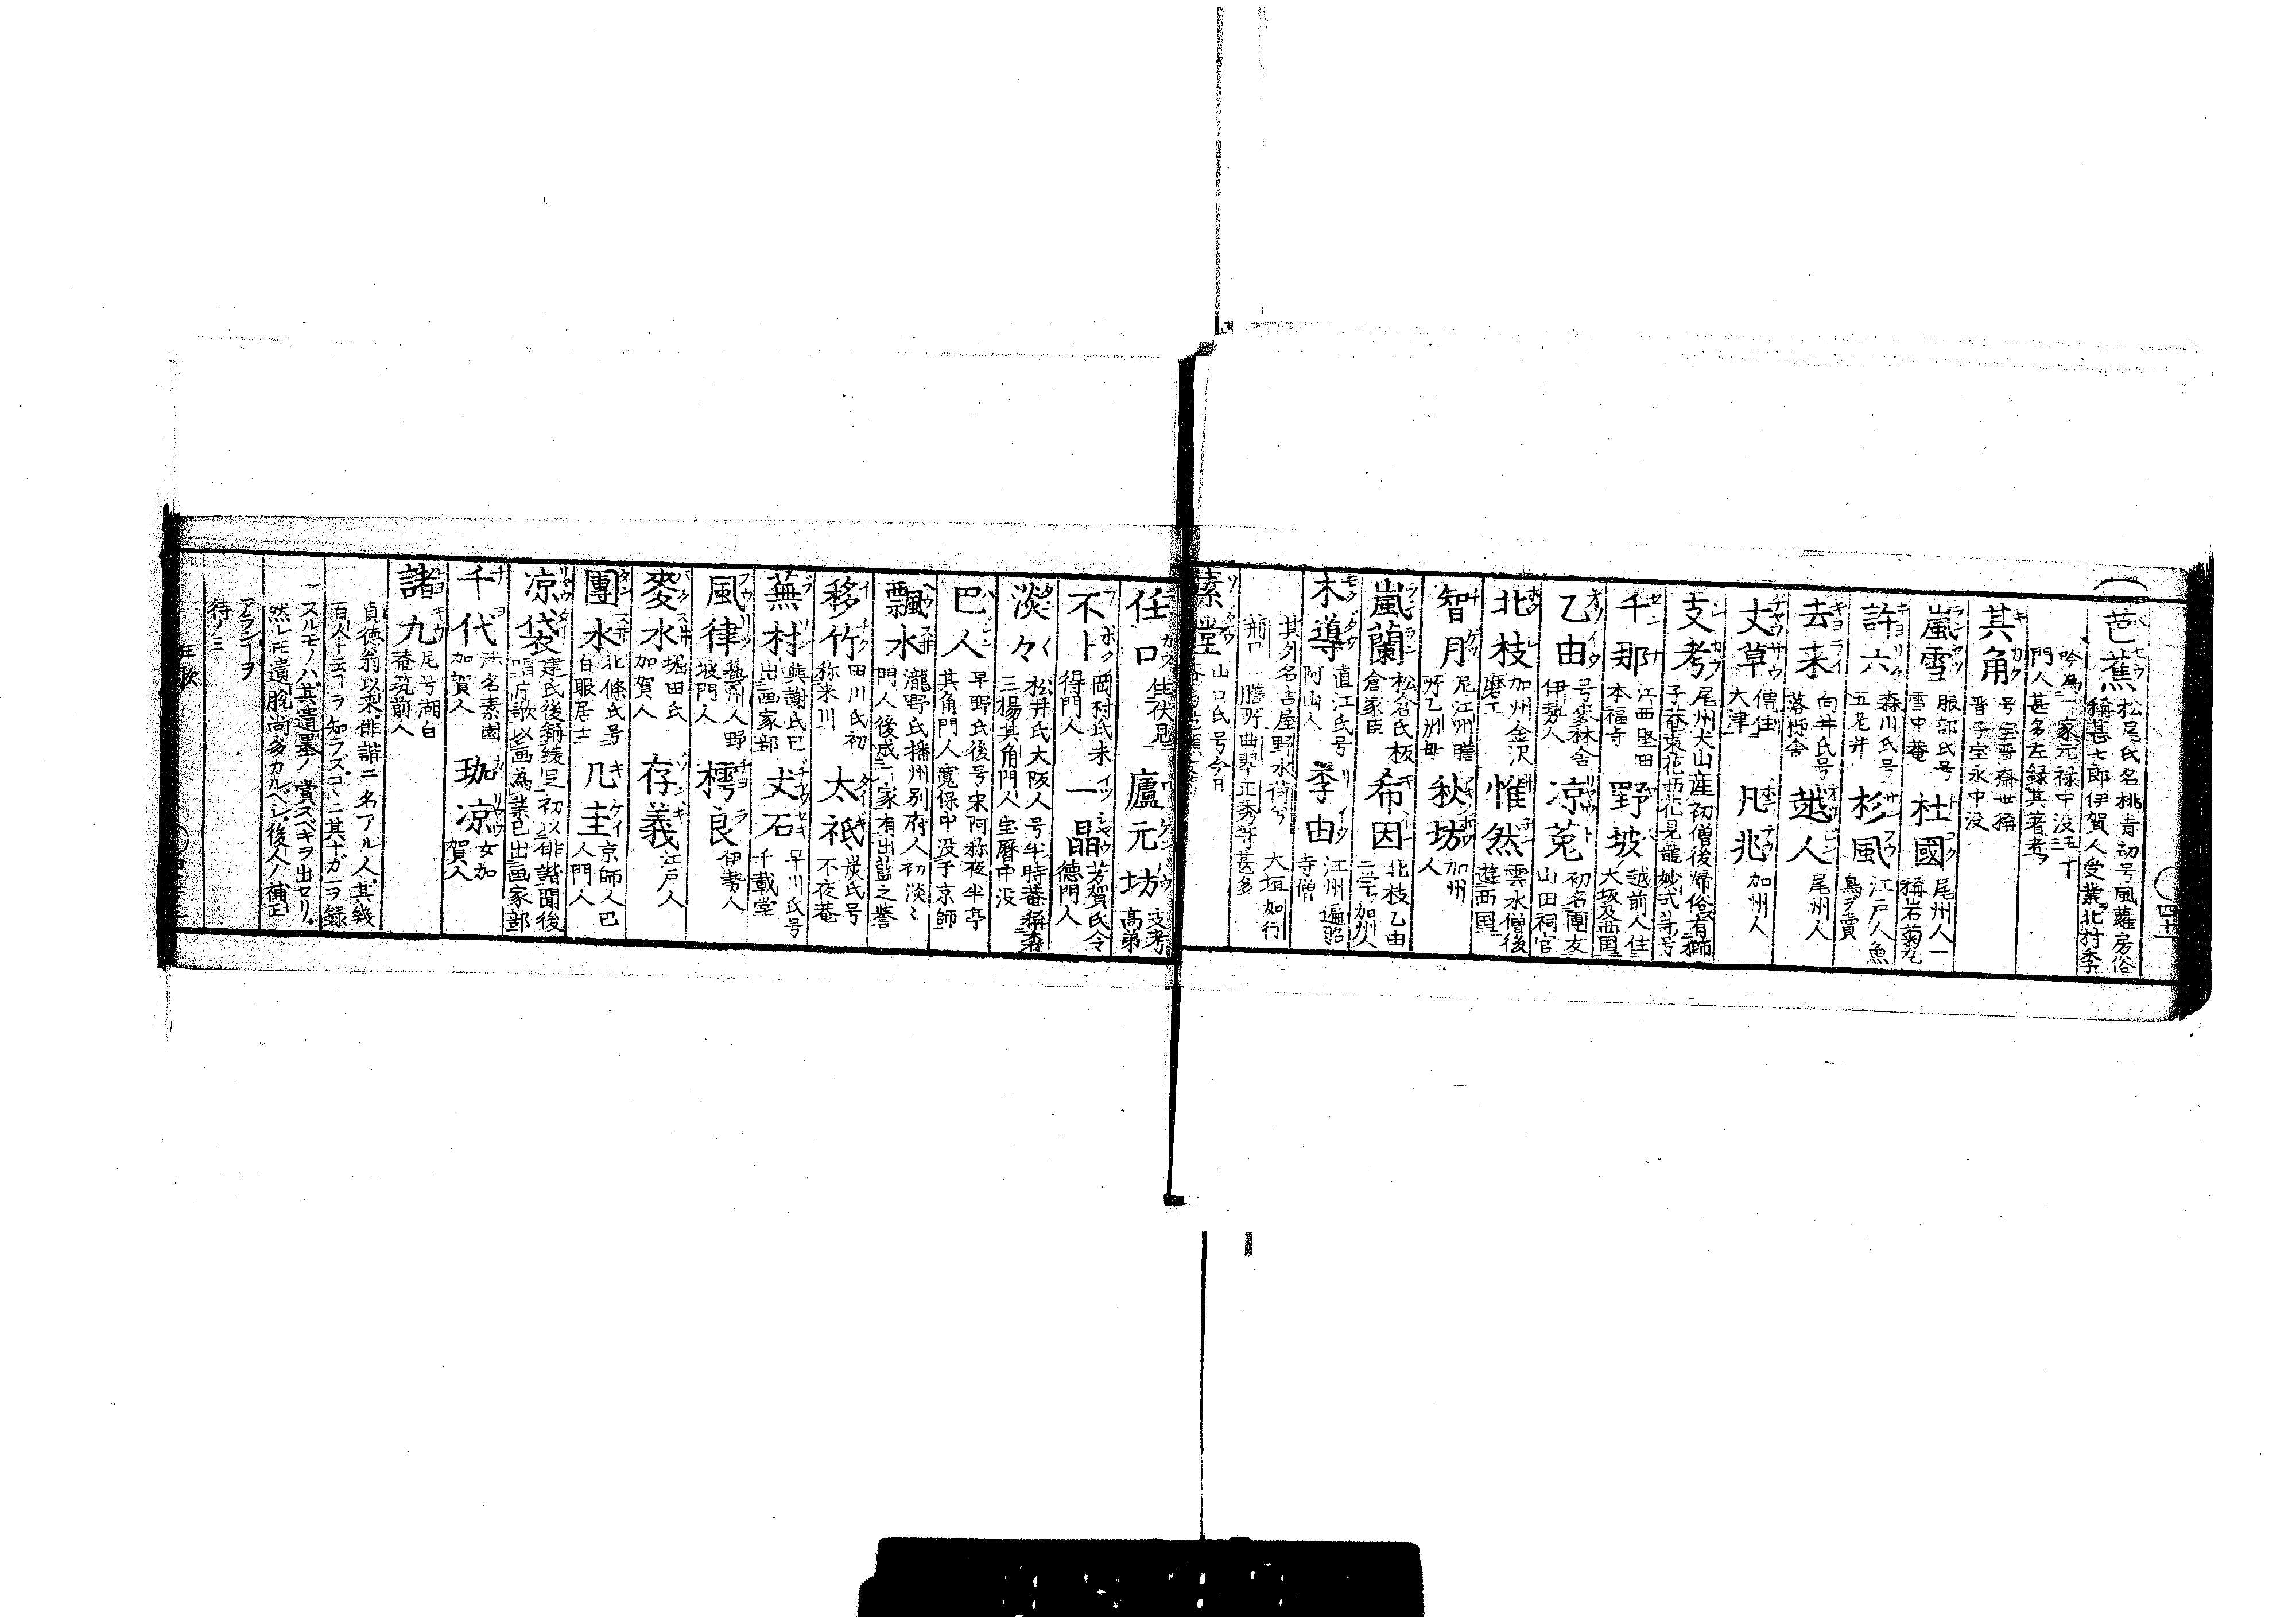 芭蕉 松尾氏名桃青初号風蘿房俗
稱甚七郎伊賀人受業北村季
吟為一家元禄中没五十
門人甚多左録其著者
其角 号宝晋斎世稱
晋子宝永中没
嵐雪 服部氏号
雪中菴
杜國 尾州人一
稱岩菊丸
許六 森川氏号
五老井
杉風 江戸人魚
鳥ヲ賣
去来 向井氏号
落柿舎
越人 尾州人
丈草 僧住
大津
凡兆 加州人
支考 尾州犬山産初僧後帰俗有獅
子菴東花西花見龍妙式等号
千那 江西堅田
本福寺
野坡 越前人住
大坂及西国
乙由 号麦林舎
伊勢人
凉菟 初名團友
山田祠官
北枝 加州金沢
磨工
惟然 雲水僧後
遊西国
智月 尼江州膳
所乙州母
秋坊 加州
人
嵐蘭 松倉氏板
倉家臣
希因 北枝乙由
加州人
木導 直江氏号
阿山人
李由 江州遍昭
寺僧
其外名古屋野水荷兮 大垣如行
膳所曲翠正秀等甚多
素堂 山口氏号今日
任口 住伏見
廬元坊 支考
高弟
不卜 岡村氏未
得門人
一晶 芳賀氏令
徳門人
淡々 松井氏大阪人号半時菴稱森
三楊其角門人宝暦中没
巴人 早野氏後号宋阿称夜半亭
其角門人寛保中没于京師
飄水 瀧野氏播州別府人初淡々
門人後成一家有出藍之誉
移竹 田川氏初
称来川
太祇 炭氏号
不夜菴
蕪村 與謝氏已
出画家部
丈石 早川氏号
千載堂
風律 藝州人野
坡門人
樗良 伊勢人
麥水 堀田氏
加賀人
存義 江戸人
團水 北條氏号
白眼居士
几圭 京師人巴
人門人
凉袋 建氏後稱綾足初以俳諧聞後
唱片歌以画為業已出画家部
千代 法名素園
加賀人
珈凉 女加
賀人
諸九 尼号湖白
菴筑前人
貞徳翁以来俳諧ニ名アル人其幾
百人ト云フヿヲ知ラズコヽニ其十ガ一ヲ録
スルモノハ其遺墨ノ賞スベキヲ出セリ
然レモ遺脱尚多カルベシ後人ノ補正
アランヿヲ
待ノミ